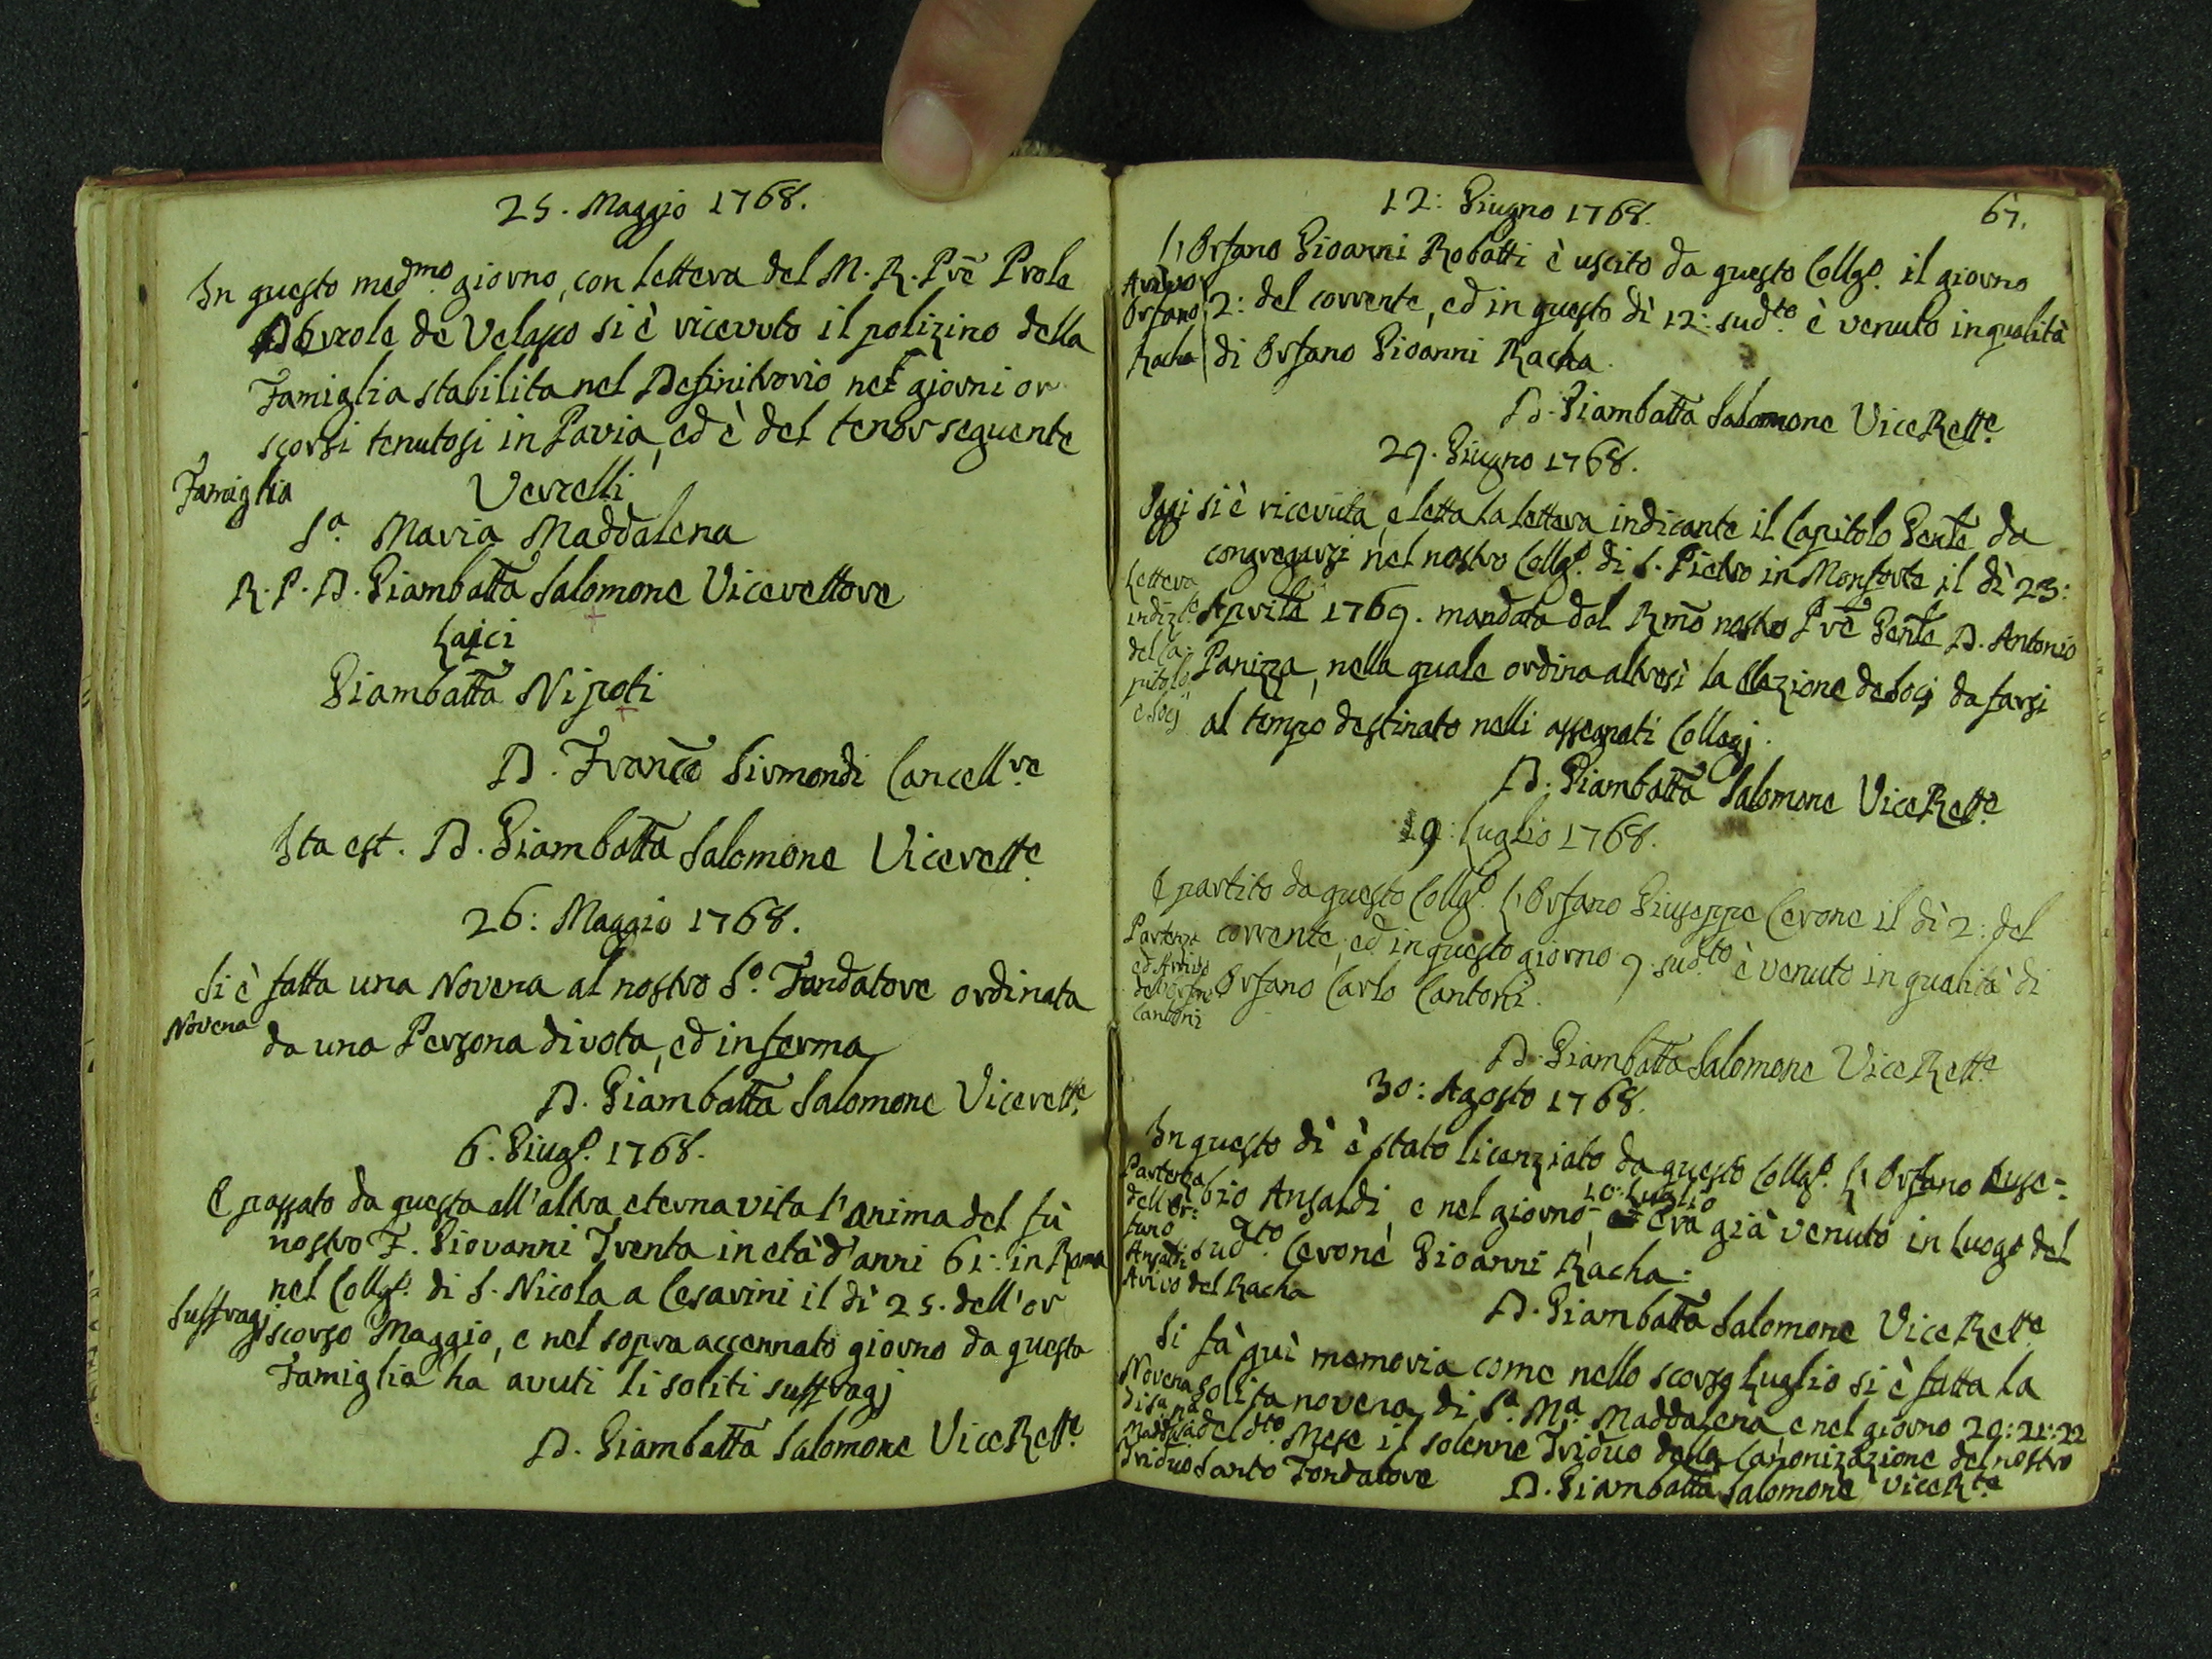 25. Maggio 1768.
In questo medmo. giorno, con lettera del M. R. Prē Prole
de Velasco si è ricevuto il polizino della
Famiglia stabilita nel Definitorio nei giorni or
scorsi tenutosi in Pavia, ed è del tenor seguente
Famiglia
Vercelli
Sa. Maria Maddalena
R. P. D. Giambatta Salomone Vicerettore
Laici
Giambatta Nipoti
D. Franco Sirmondi Cancellre
Ita est. D. Giambatta Salomone Vicerette
26: Maggio 1768.
Si è fatta una Novena al nostro So. Fondatore ordinata
Novena
da una Persona divota, ed inferma
D. Giambatta Salomone Vicerette
6. Giugo. 1768.
E passato da questa all'altra eterna vita l'anima del fù
nostro F. Giovanni Trenta in età d'anni 61: in Roma
nel Collgo. di S. Nicola a Cesarini il dì 25. dell'or
Suffragj
scorso Maggio, e nel sopra accennato giorno da questa
Famiglia ha avuti li soliti suffragj
D. Giambatta Salomone ViceRette
12: Giugno 1768.
67.
L'Orfano Gioanni Robatti è uscito da questo Collgo. il giorno
Arrivo
Orfano
Racha
2: del corrente, ed in questo dì 12: sudto. è venuto in qualità
di Orfano Gioanni Racha.
D. Giambatta Salomone ViceRette
29. Giugno 1768.
Oggi si è ricevuta, e letta la lettera indicante il Capitolo Genle da
congregarsi nel nostro Collgo. di S. Pietro in Monforte il dì 23:
Lettera
del Ca-
pitolo,
e Socj
Aprile 1769. mandata dal Rmō nostro Prē Genle D. Antonio
Panizza, nella quale ordina altresì la Elezione de Socj da farsi
al tempo destinato nelli assegnati Collegj.
D. Giambatta Salomone ViceRette
9: Luglio 1768.
E partito da questo Collgo. L'Orfano Giuseppe Cerone il dì 2: del
Partenza
ed Arrivo
dell'Orfano
Cantoni
corrente, ed in questo giorno 9. sudto. è venuto in qualità di
Orfano Carlo Cantoni.
D. Giambatta Salomone ViceRette
30: Agosto 1768.
In questo dì è stato licenziato da questo Collgo. L'Orfano Euse-
Partenza
dell'Or-
fano
Ansaldi
Arivo del Racha
bio Ansaldi, e nel giorno 10: Luglio era già venuto in luogo del
sudto. Cerone Gioanni Racha.
D. Giambatta Salomone ViceRette
Si fà quì memoria come nello scorso Luglio si è fatta la
Novena
di Sa. Ma
Maddla
Triduo
solita novena di Sa. Ma. Maddalena e nel giorno 20: 21: 22
del dto. Mese il solenne Triduo della Canonizazione del nostro
Santo Fondatore
D. Giambatta Salomone ViceRte